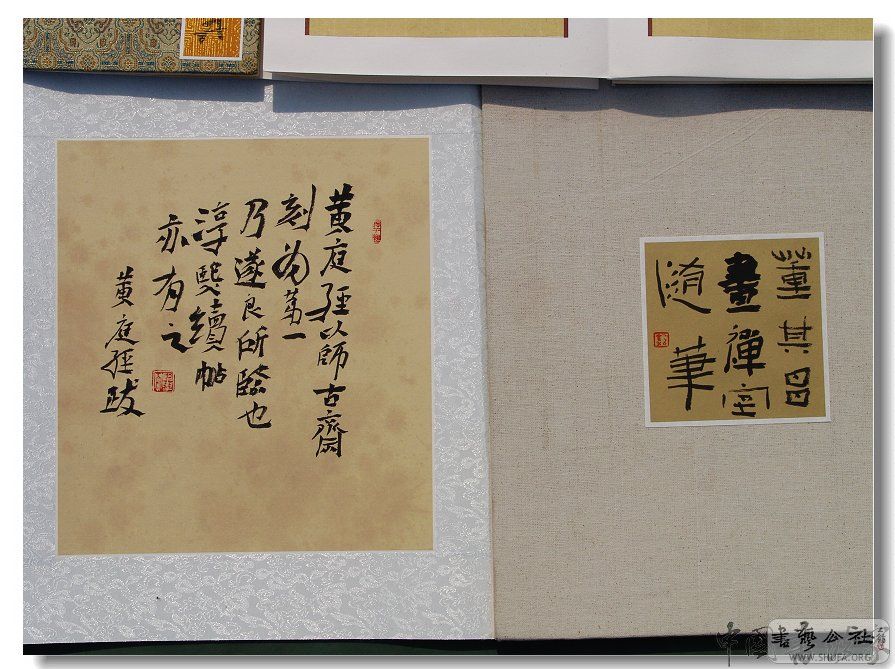 黄庭经以師古齋
刻为第一
乃遂良所臨也
淳熙續帖
亦有之
黄庭经跋
董其昌
畫禪室
随筆
中国書法公社
WWW.SHUFA.ORG